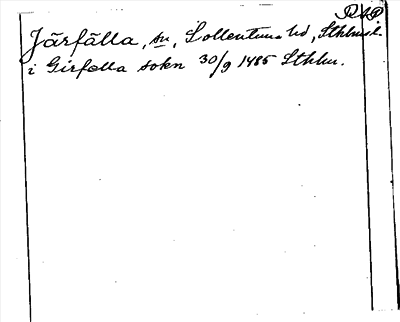 RAP
Järfälla, sn, Sollentuna hd, Sthlms l.
i Girfalla sokn 30/9 1485 Sthlm.